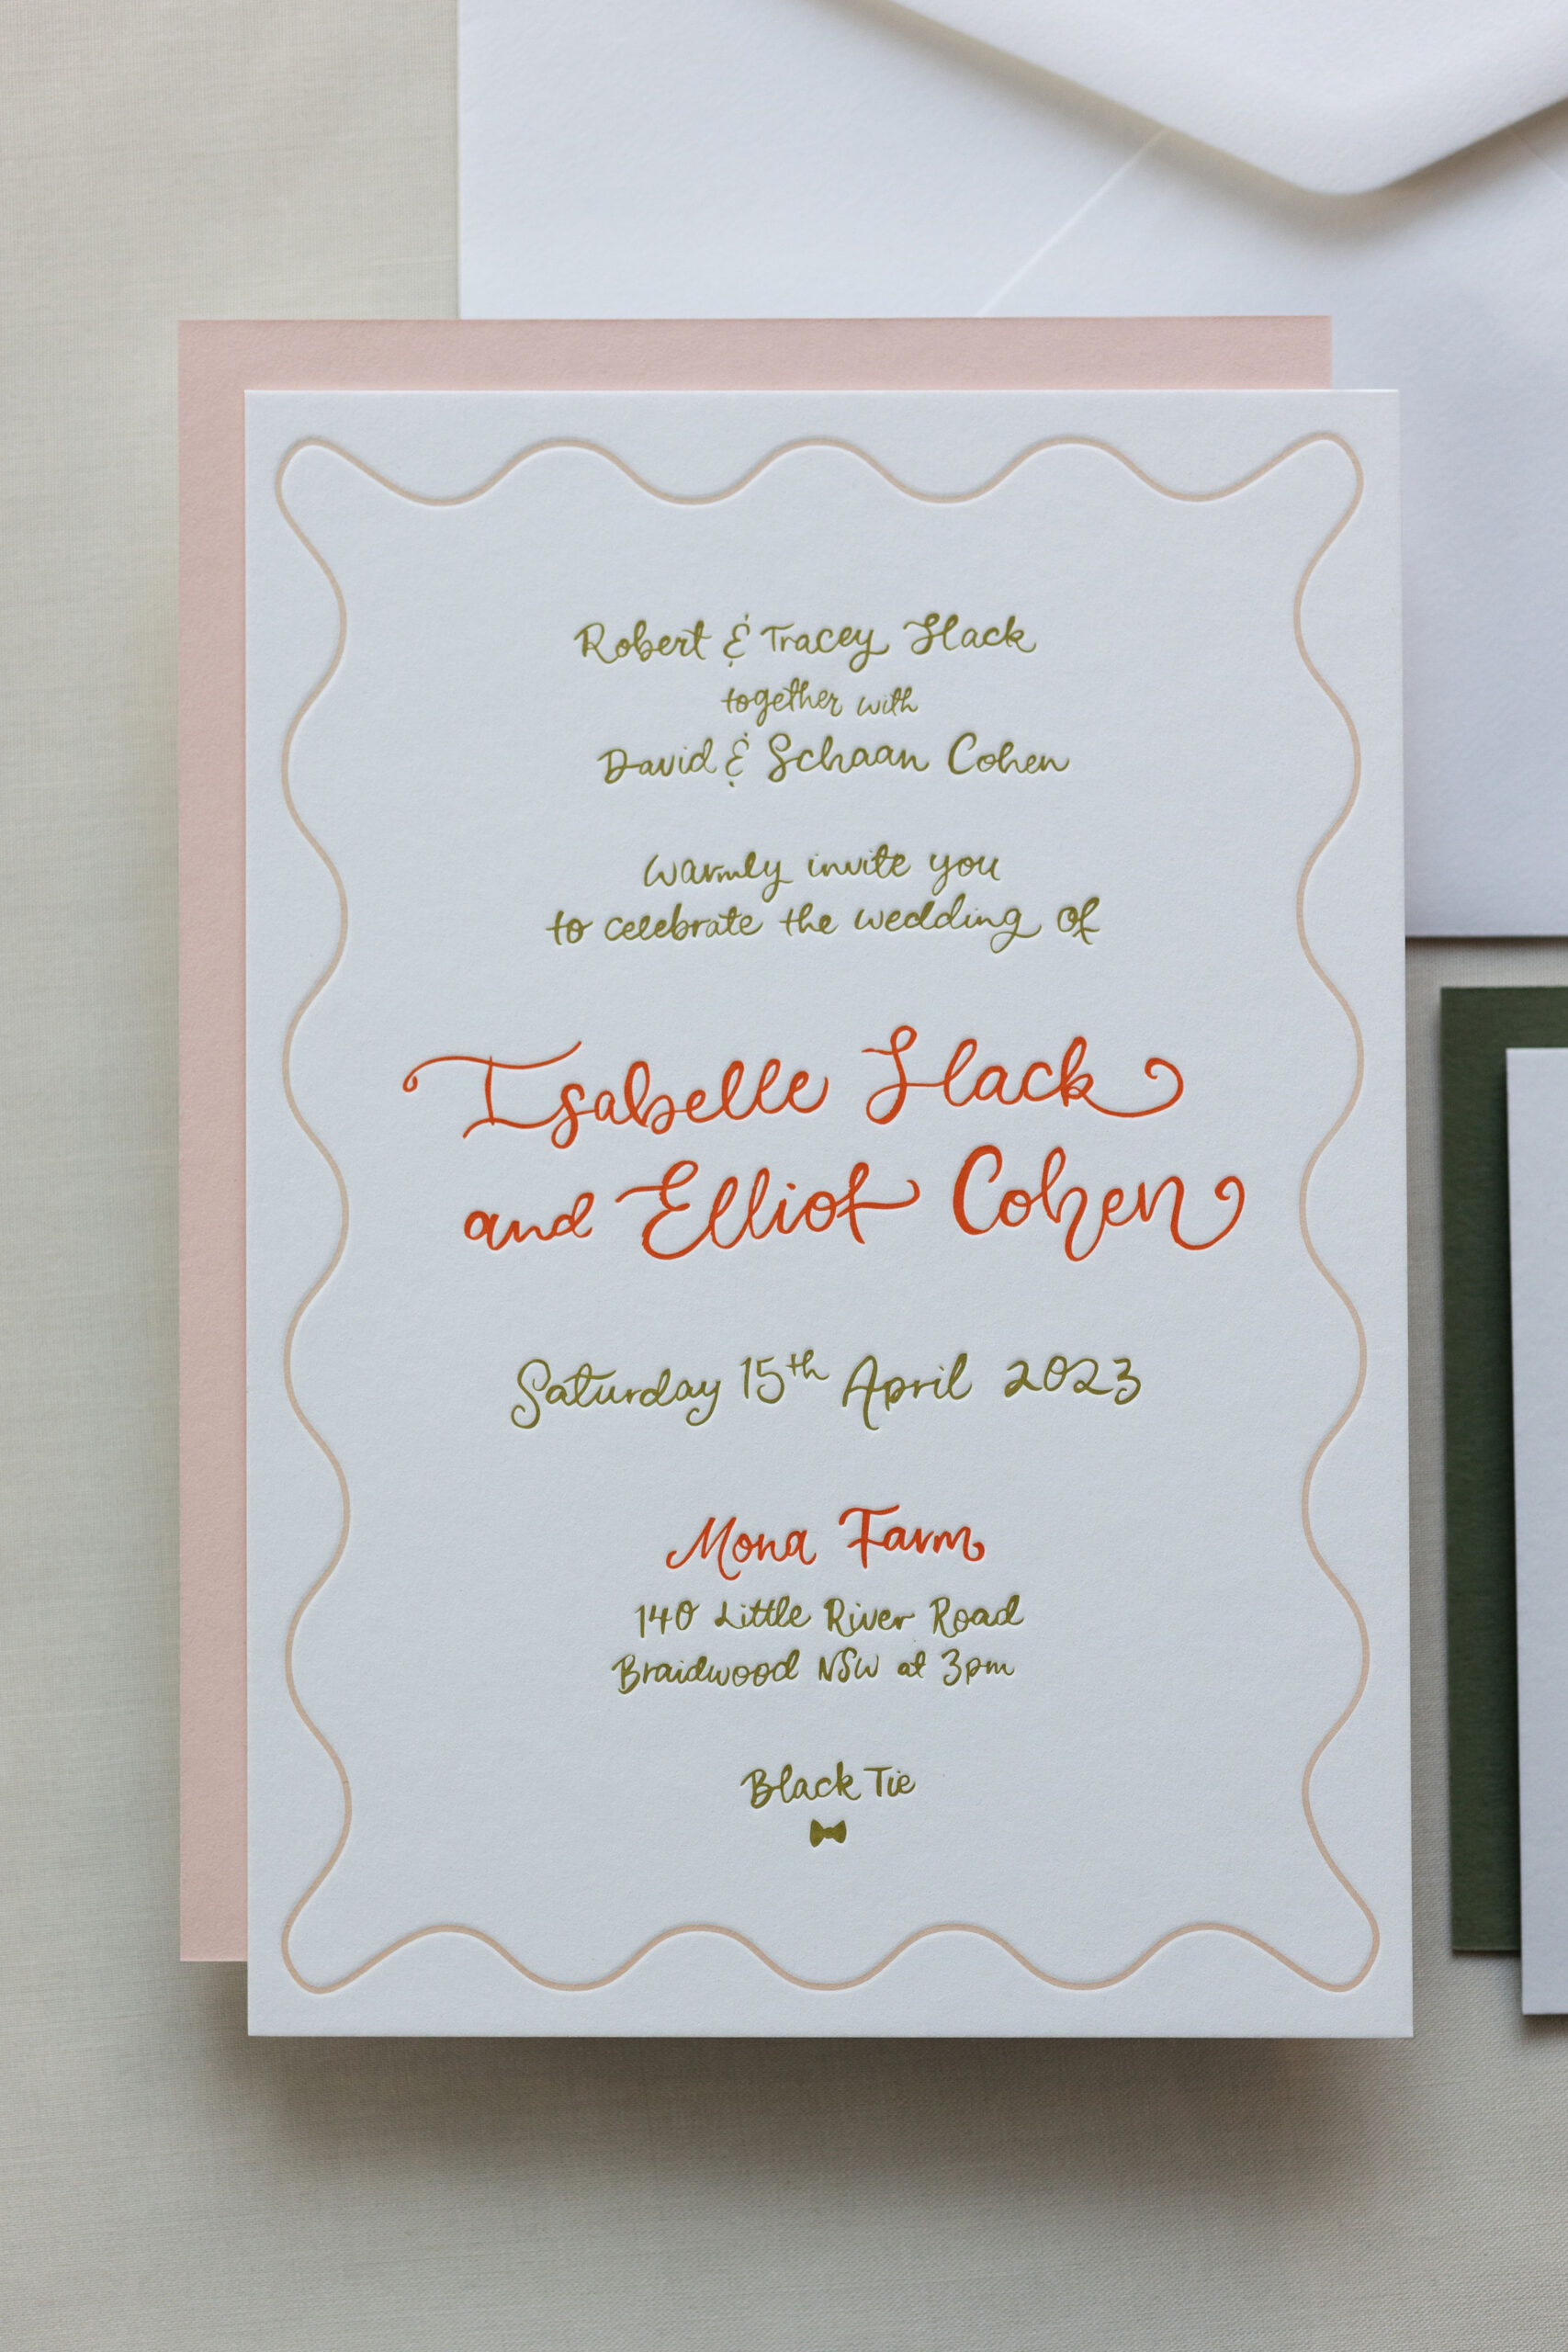 Robert & Tracey Slack
together with
David & Schaan Cohen
warmly invite you
to celebrate the wedding of
Isabelle Slack
and Elliot Cohen
Saturday 15th April 2023
Mona Farm
140 Little River Road
Braidwood NSW at 3pm
Black Tie